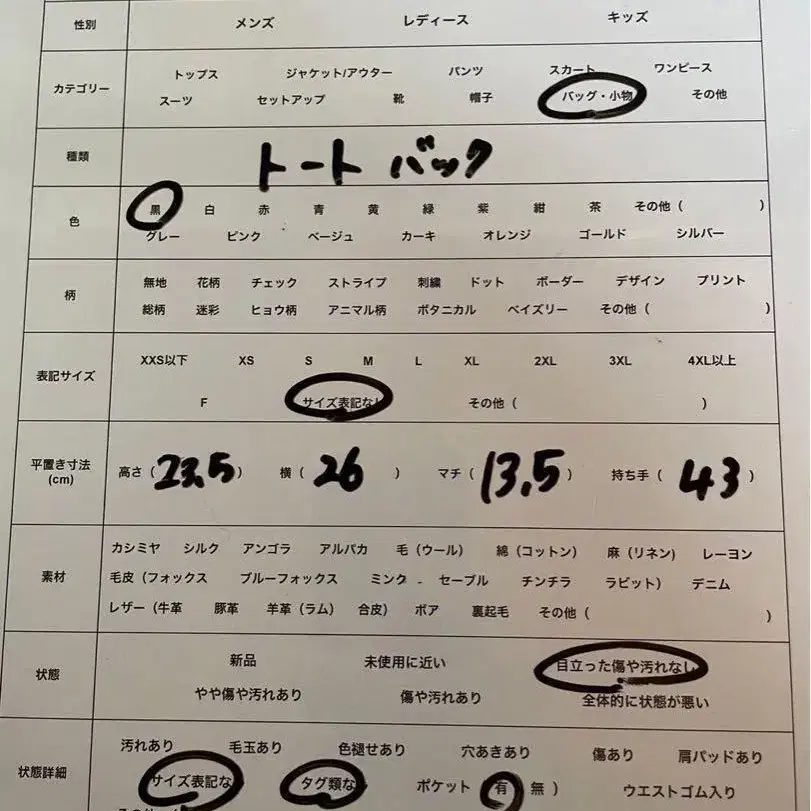 性別 メンズ レディース キッズ
カテゴリー トップス ジャケット/アウター パンツ スカート ワンピース
スーツ セットアップ 靴 帽子 バッグ・小物 その他
種類 トートバック
色 黒 白 赤 青 黄 緑 紫 紺 茶 その他（ ）
グレー ピンク ベージュ カーキ オレンジ ゴールド シルバー
柄 無地 花柄 チェック ストライプ 刺繍 ドット ボーダー デザイン プリント
総柄 迷彩 ヒョウ柄 アニマル柄 ボタニカル ペイズリー その他（ ）
表記サイズ XXS以下 XS S M L XL 2XL 3XL 4XL以上
F サイズ表記なし その他（ ）
平置き寸法
(cm) 高さ（23.5） 横（26） マチ（13.5） 持ち手（43）
素材 カシミヤ シルク アンゴラ アルパカ 毛（ウール） 綿（コットン） 麻（リネン） レーヨン
毛皮（フォックス ブルーフォックス ミンク セーブル チンチラ ラビット） デニム
レザー（牛革 豚革 羊革（ラム） 合皮） ボア 裏起毛 その他（ ）
状態 新品 未使用に近い 目立った傷や汚れなし
やや傷や汚れあり 傷や汚れあり 全体的に状態が悪い
状態詳細 汚れあり 毛玉あり 色褪せあり 穴あきあり 傷あり 肩パッドあり
サイズ表記な タグ類な ポケット 有 無） ウエストゴム入り